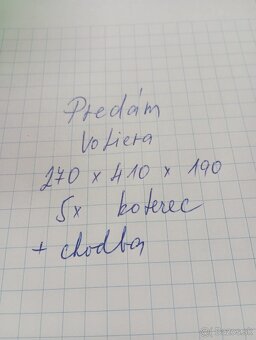 Predám
Voliera
270 x 410 x 190
5x koterec
+ chodba